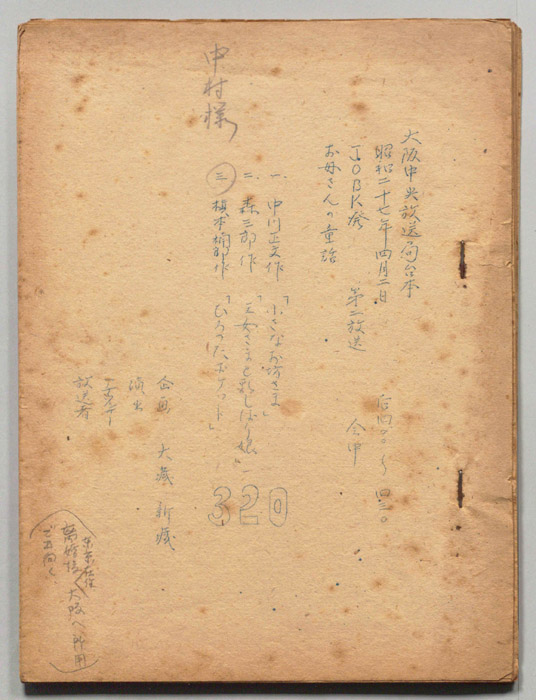 大阪中央放送局台本
昭和二十七年四月二日 后四.〇.〜四.三〇
JOBK発 第二放送 全中
お母さんの童話
一、中川正文作「小さなお坊さま」
二、森三郎作「王女さまと乳しぼり娘」
三、槇本楠郎作「ひろったポケット」
320
中村様
企画 大蔵 新蔵
演出
放送者
大阪へ